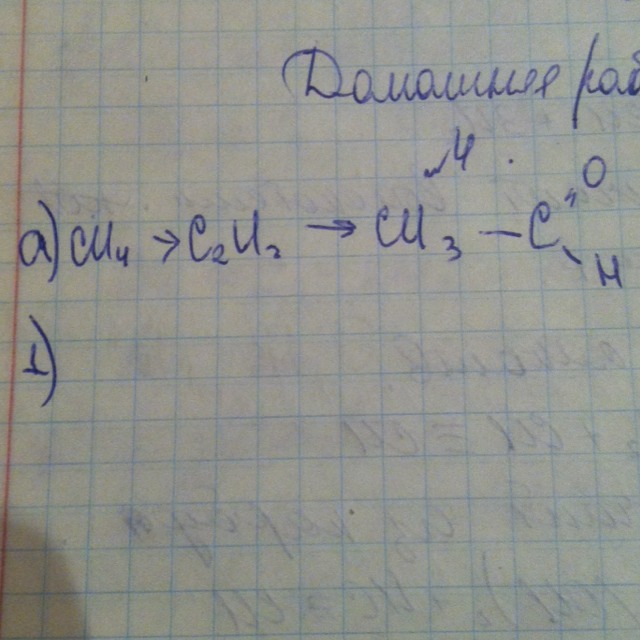 Домашняя раб
№4.
а) CH₄ → C₂H₂ → CH₃ — C
O
H
1)